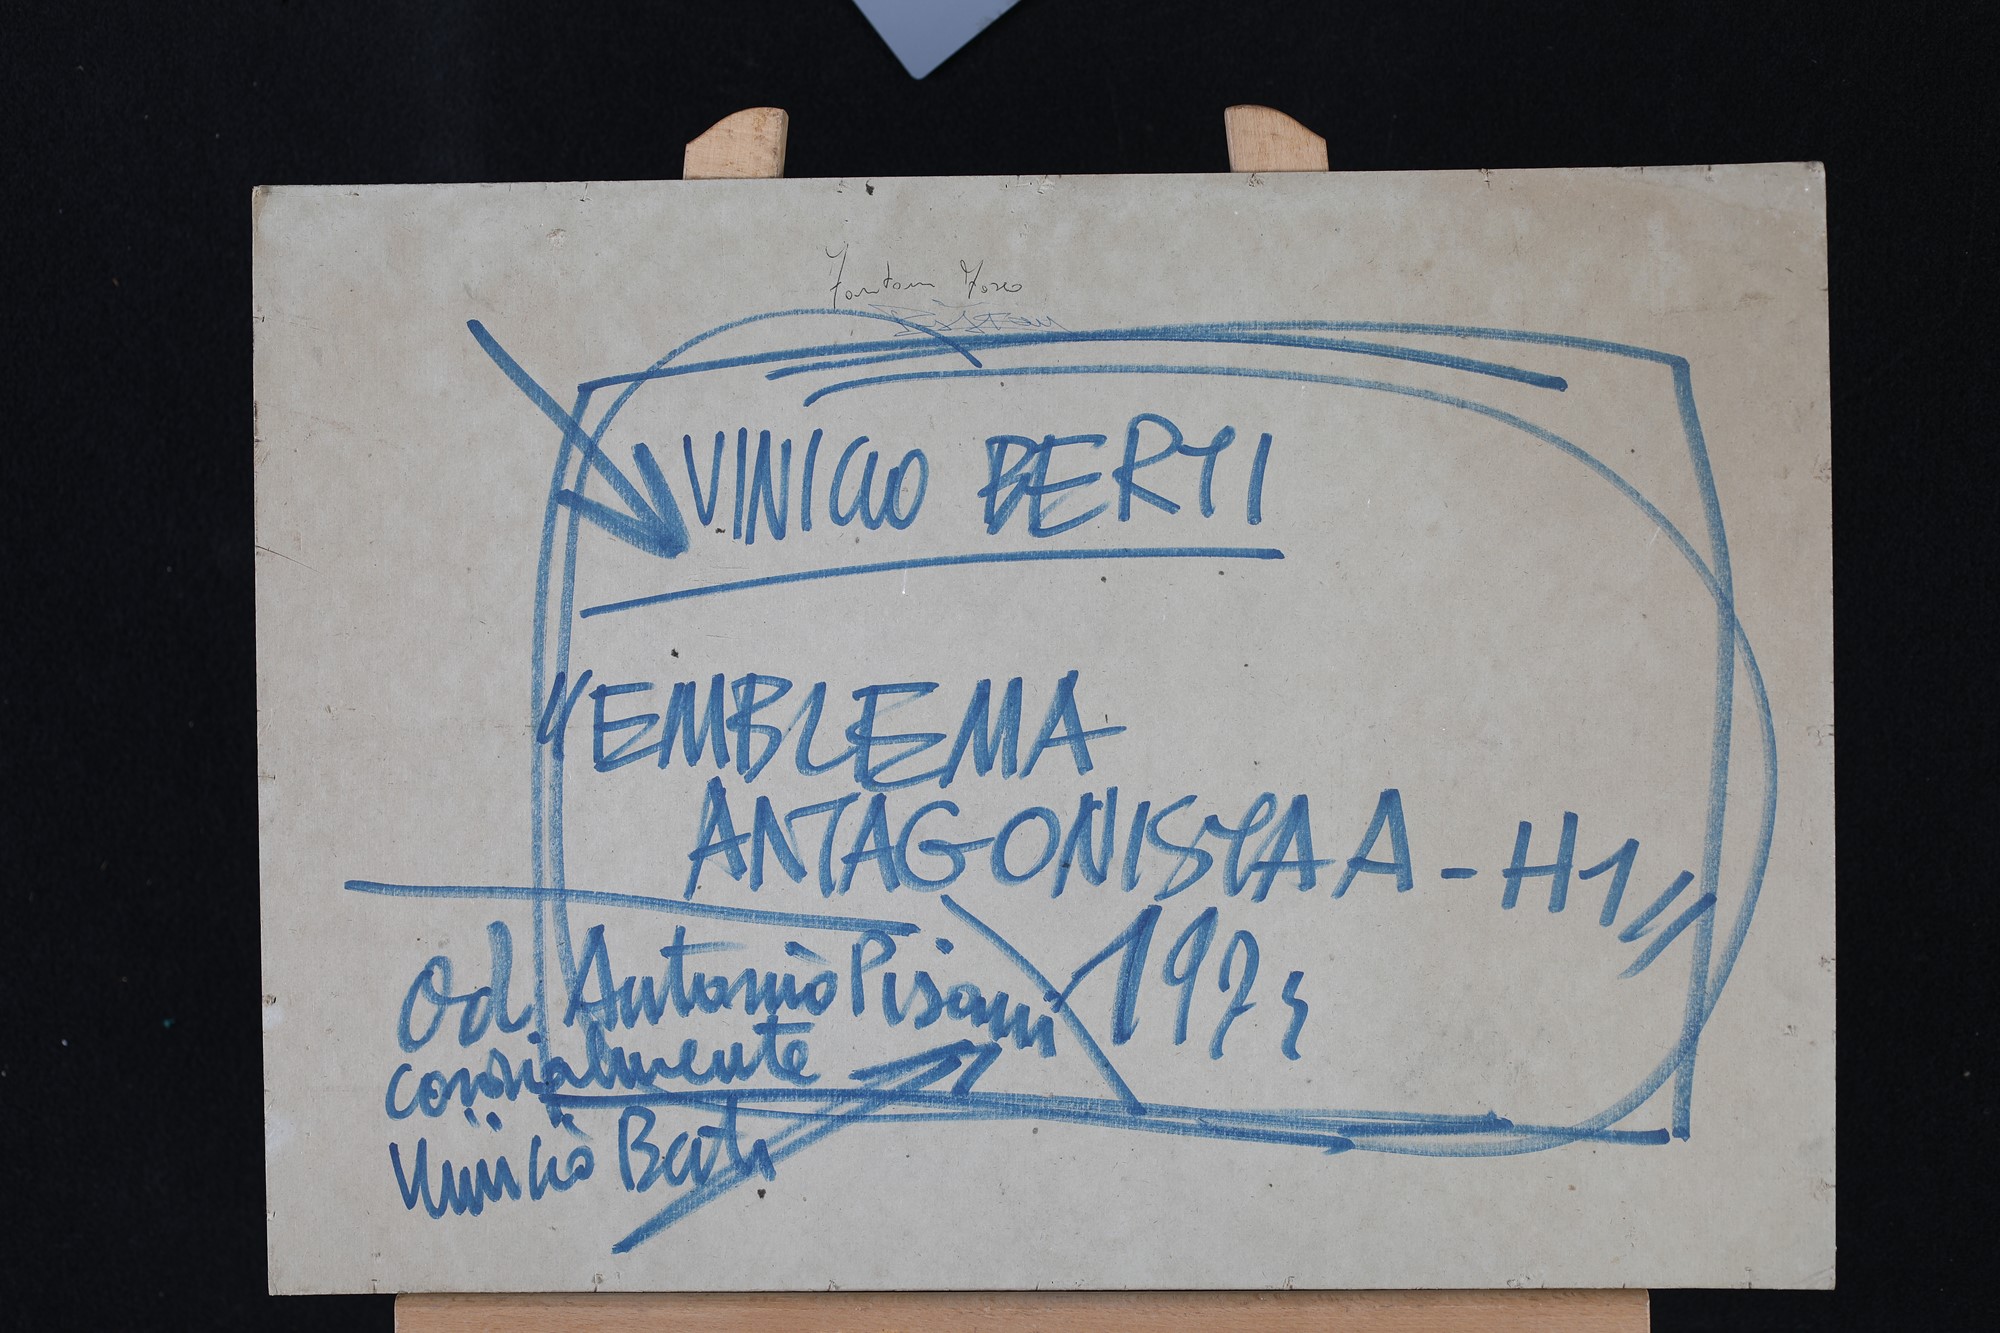 VINICIO BERTI
"EMBLEMA
ANTAGONISTA A - H1"
Ad Antonio Pisani
cordialmente
Vinicio Berti